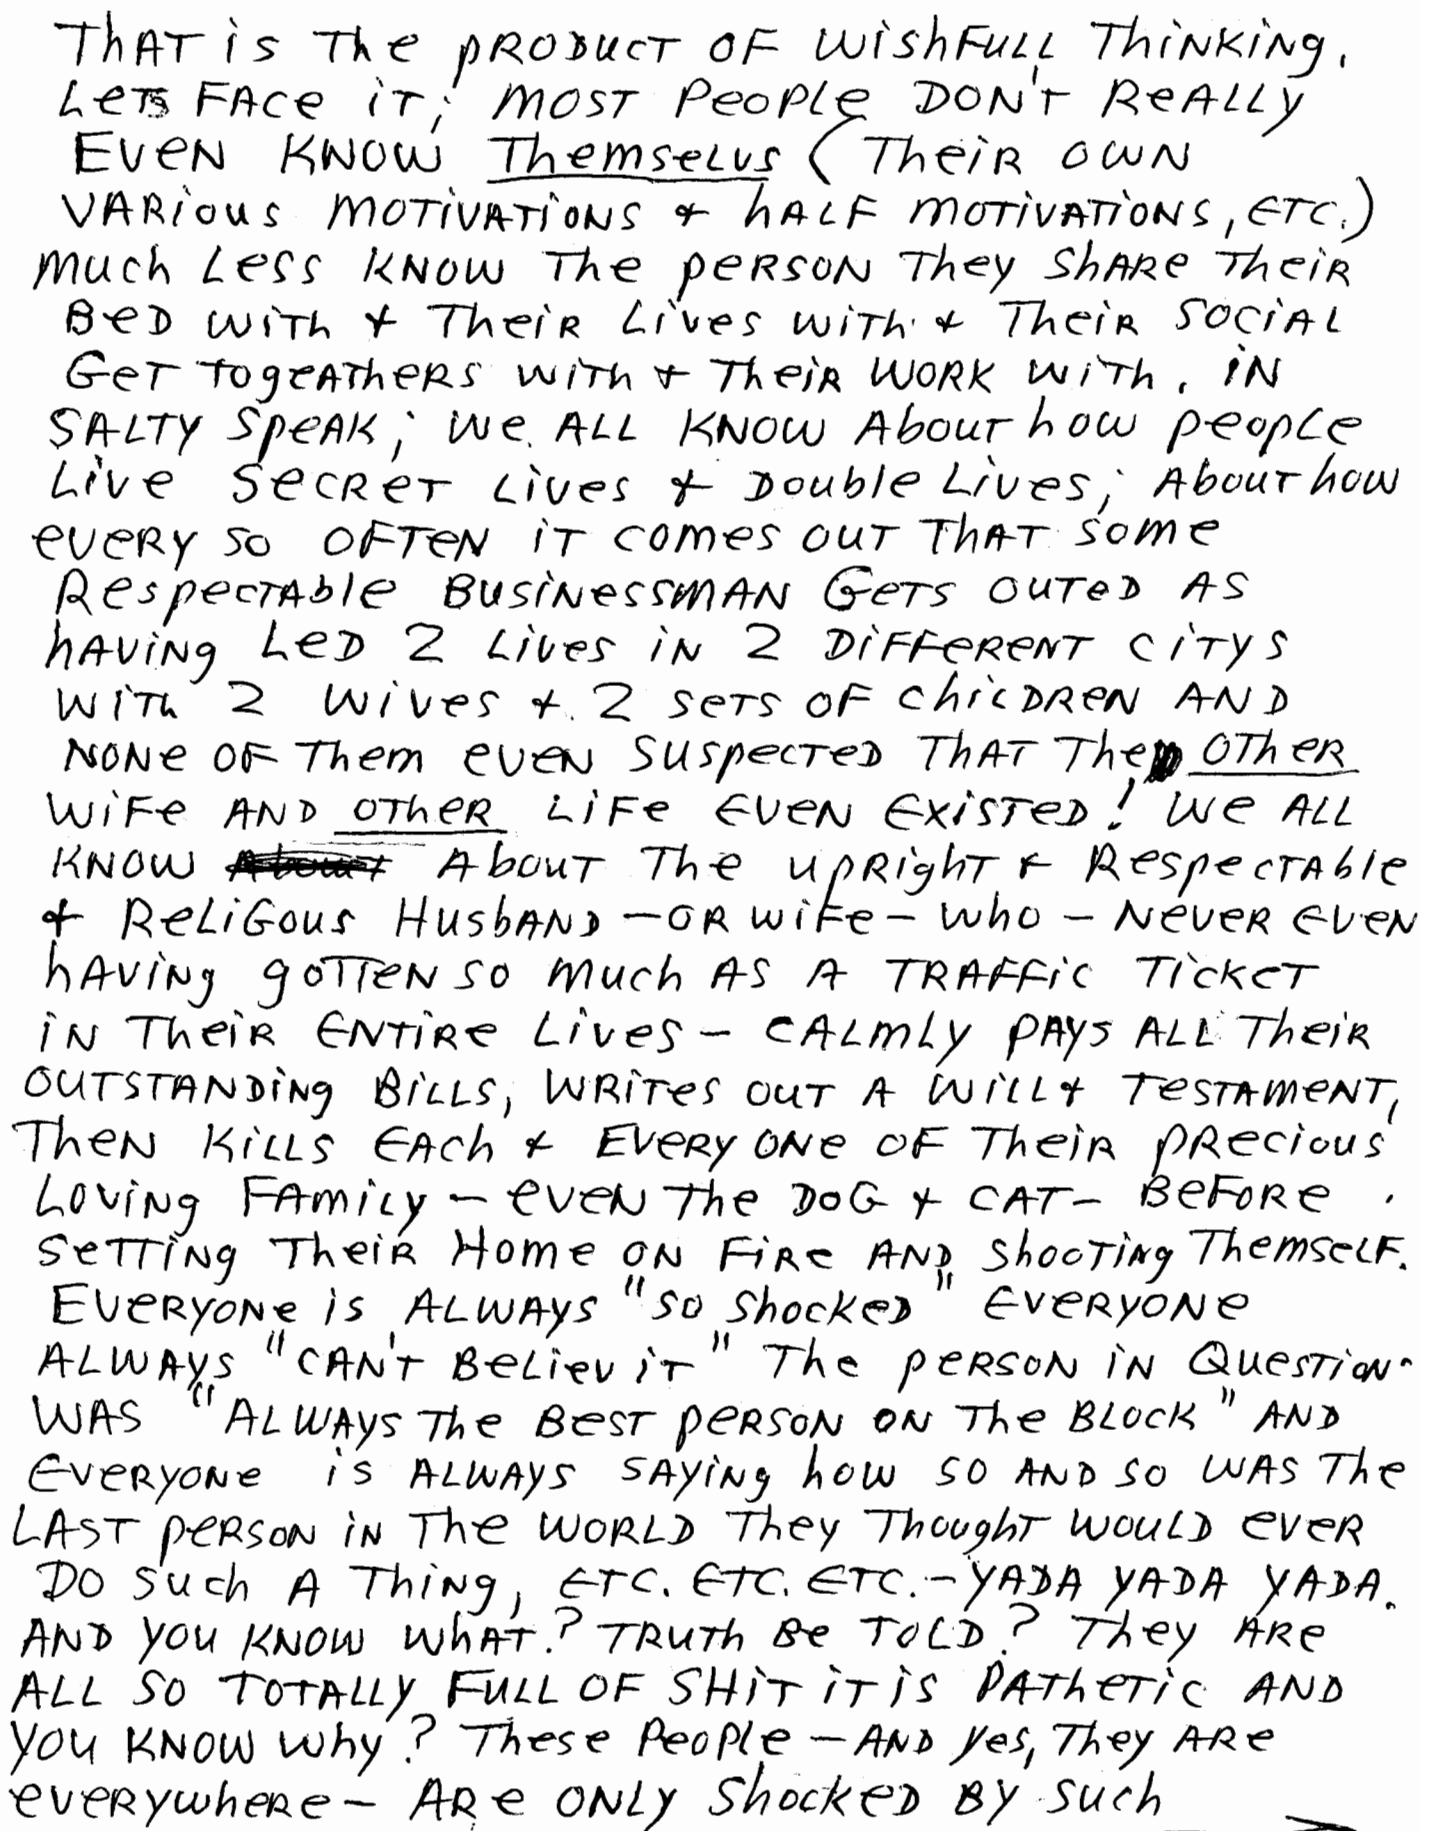 THAT iS The pRODucT OF WishFuLL ThiNKiNg.
LeTS FAce iT; MOST People DON'T ReALLy
EVEN KNOW ThemseLvs (TheiR OWN
VARious MOTiVATiONS & hALF MOTiVATiONS, ETC.)
Much Less KNOW The peRSON They ShARe TheiR
BeD WiTh & TheiR Lives WiTh & TheiR SociAL
GeT TogeATheRS WiTh & TheiR WORK WiTh. IN
SALTY SpeAK; We ALL KNOW AbouT how people
Live SecReT Lives & Double Lives; AbouT how
eveRy so OFTeN iT comes ouT ThAT some
RespecTAble BusiNessMAN GeTS ouTeD AS
hAViNg LeD 2 Lives iN 2 DiFFeReNT ciTys
WiTh 2 Wives & 2 seTS OF chiLDReN AND
NONe OF Them eveN SuspecTeD ThAT The OTheR
WiFe AND OTheR LiFe EVEN ExiSTeD! We ALL
KNOW AbouT The upRighT & RespecTAble
& ReLiGous HusbAND - OR WiFe - Who - NeveR EveN
hAViNg goTTeN so Much AS A TRAFFic TickeT
iN TheiR ENTiRe Lives - CALmly PAYS ALL TheiR
OUTSTANDiNg BiLLS, WRiTes ouT A WiLL & TesTAmeNT,
TheN KiLLS EAch & EveRy ONe OF TheiR pRecious
LoviNg FAmiLy - eveN The DoG & CAT - BeFoRe
seTTiNg TheiR Home ON FiRe AND ShooTiNg ThemseLF.
EveRyoNe is ALWAys "so Shocked" EveRyoNe
ALWAys "CAN'T BeLiev iT" The peRsoN iN QuesTioN
WAS "ALWAys The BesT peRsoN ON The BLock" AND
EveRyoNe is ALWAys SAyiNg how so AND so WAS The
LAST peRsoN iN The WoRLD They ThoughT WouLD eveR
DO such A ThiNg, ETC. ETC. ETC. - YADA YADA YADA.
AND you KNOW WhAT? TRuTh Be ToLD? They ARe
ALL SO TOTALLy FuLL OF SHiT iT iS PATheTic AND
you KNOW Why? These People - AND yes, They ARe
eveRywheRe - ARe ONLy Shocked By such